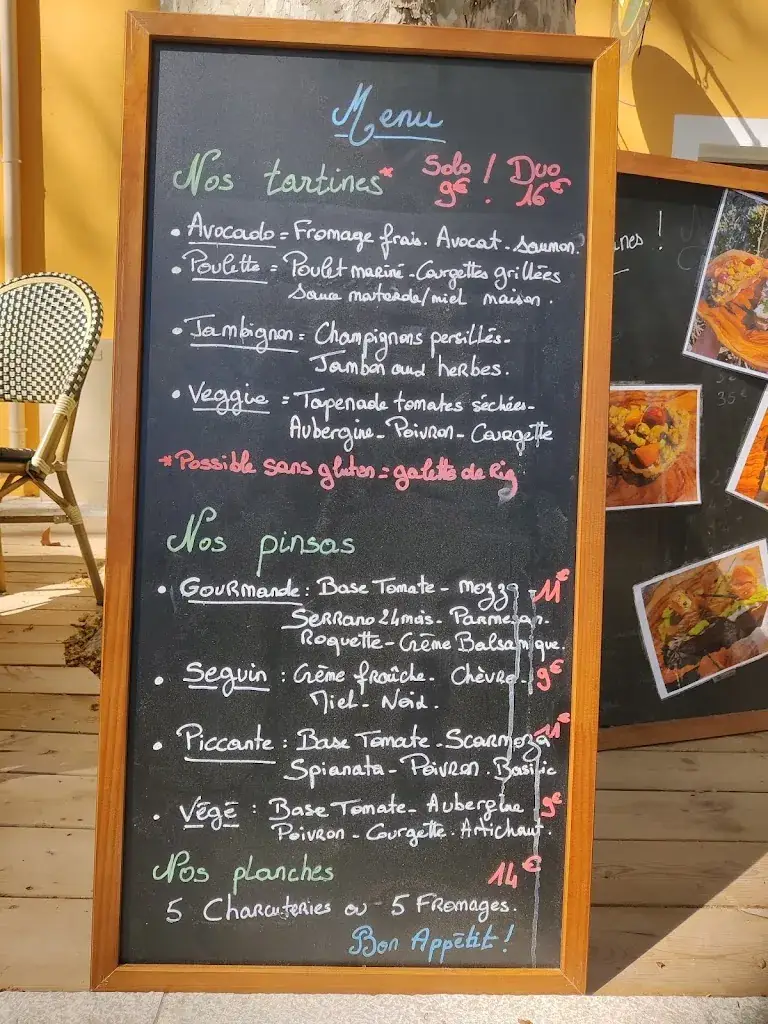 Menu
Nos tartines* Solo ! Duo
9€ 16€
• Avocado = Fromage frais. Avocat. saumon.
• Poulette = Poulet mariné - Courgettes grillées
Sauce moutarde/miel maison.
• Jambignon = Champignons persillés -
Jambon aux herbes.
• Veggie = Tapenade tomates séchées -
Aubergine - Poivron - Courgette
*Possible sans gluten = galette de riz
Nos pinsas
• Gourmande : Base Tomate - mozza 11€
Serrano 24 mois - Parmesan.
Roquette - Crème Balsamique.
• Seguin : Crème fraîche - Chèvre. 9€
Miel - Noix.
• Piccante : Base Tomate - Scarmoza 11€
Spianata - Poivron . Basilic
• Végé : Base Tomate - Aubergine 9€
Poivron - Courgette . Artichaut.
Nos planches 14€
5 Charcuteries ou 5 Fromages.
Bon Appétit !